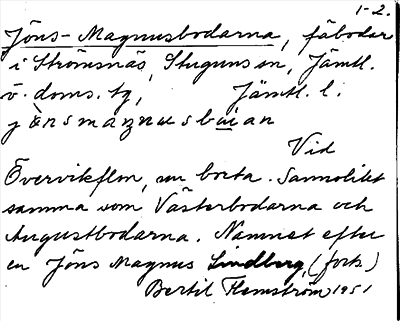 1-2.
Jöns-Magnusbodarna, fäbodar
i Strömsnäs, Stuguns sn, Jämtl.
ö. doms. tg, Jämtl. l.
Vid
Övervikflon, nu borta. Sannolikt
samma som Västerbodarna och
Augustbodarna. Namnet efter
en Jöns Magnus Lundberg, (forts.)
Bertil Flemström 1951